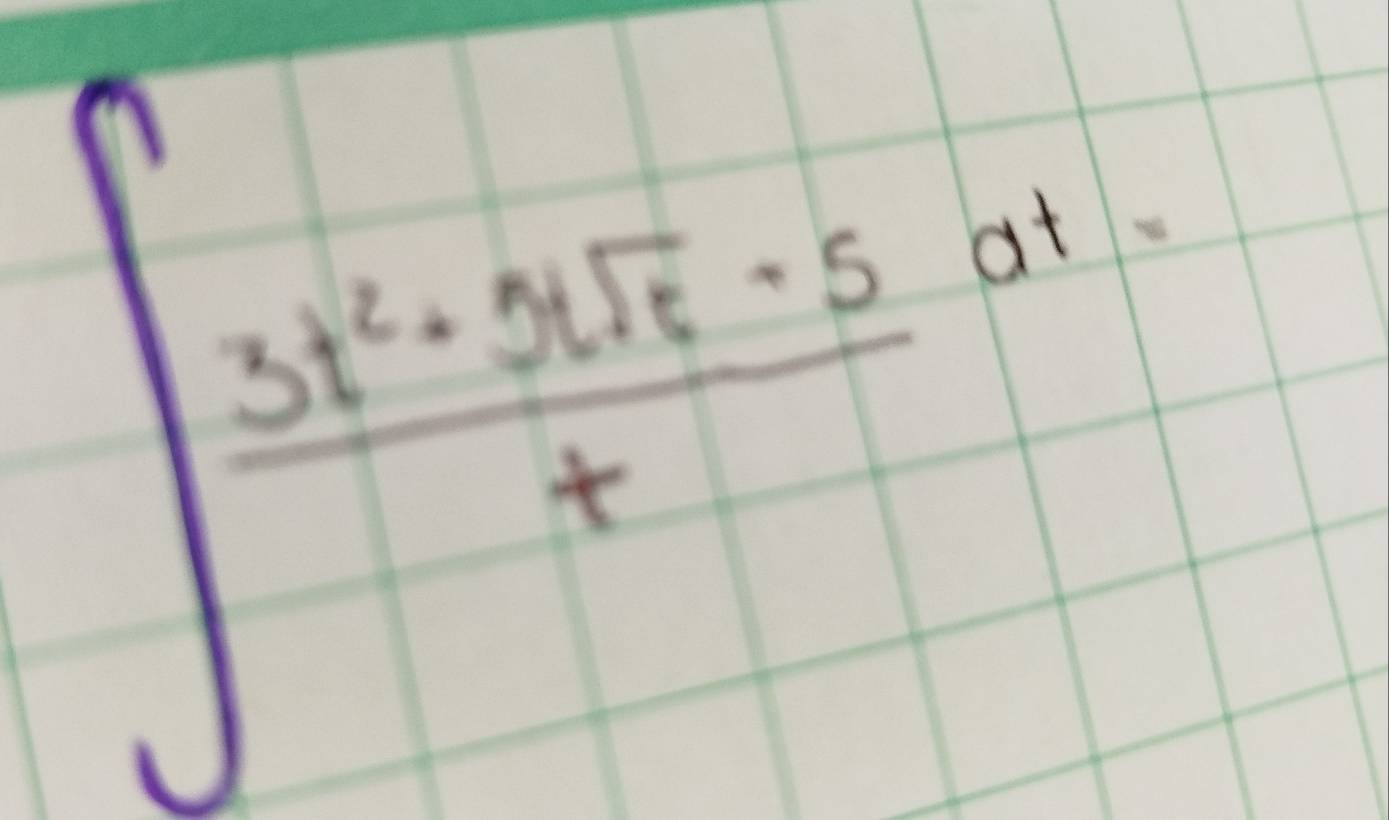 ∫ (3t² + 5t√t - 5) / t dt =